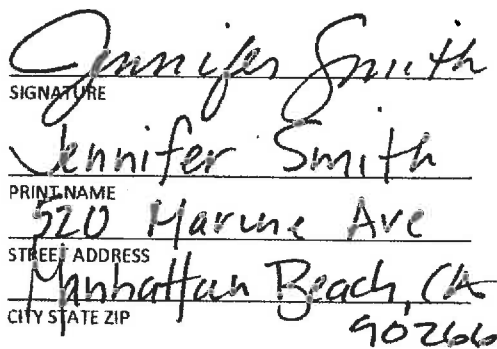 Jennifer Smith
SIGNATURE
Jennifer Smith
PRINT NAME
520 Marine Ave
STREET ADDRESS
Manhattan Beach, CA
CITY STATE ZIP
90266